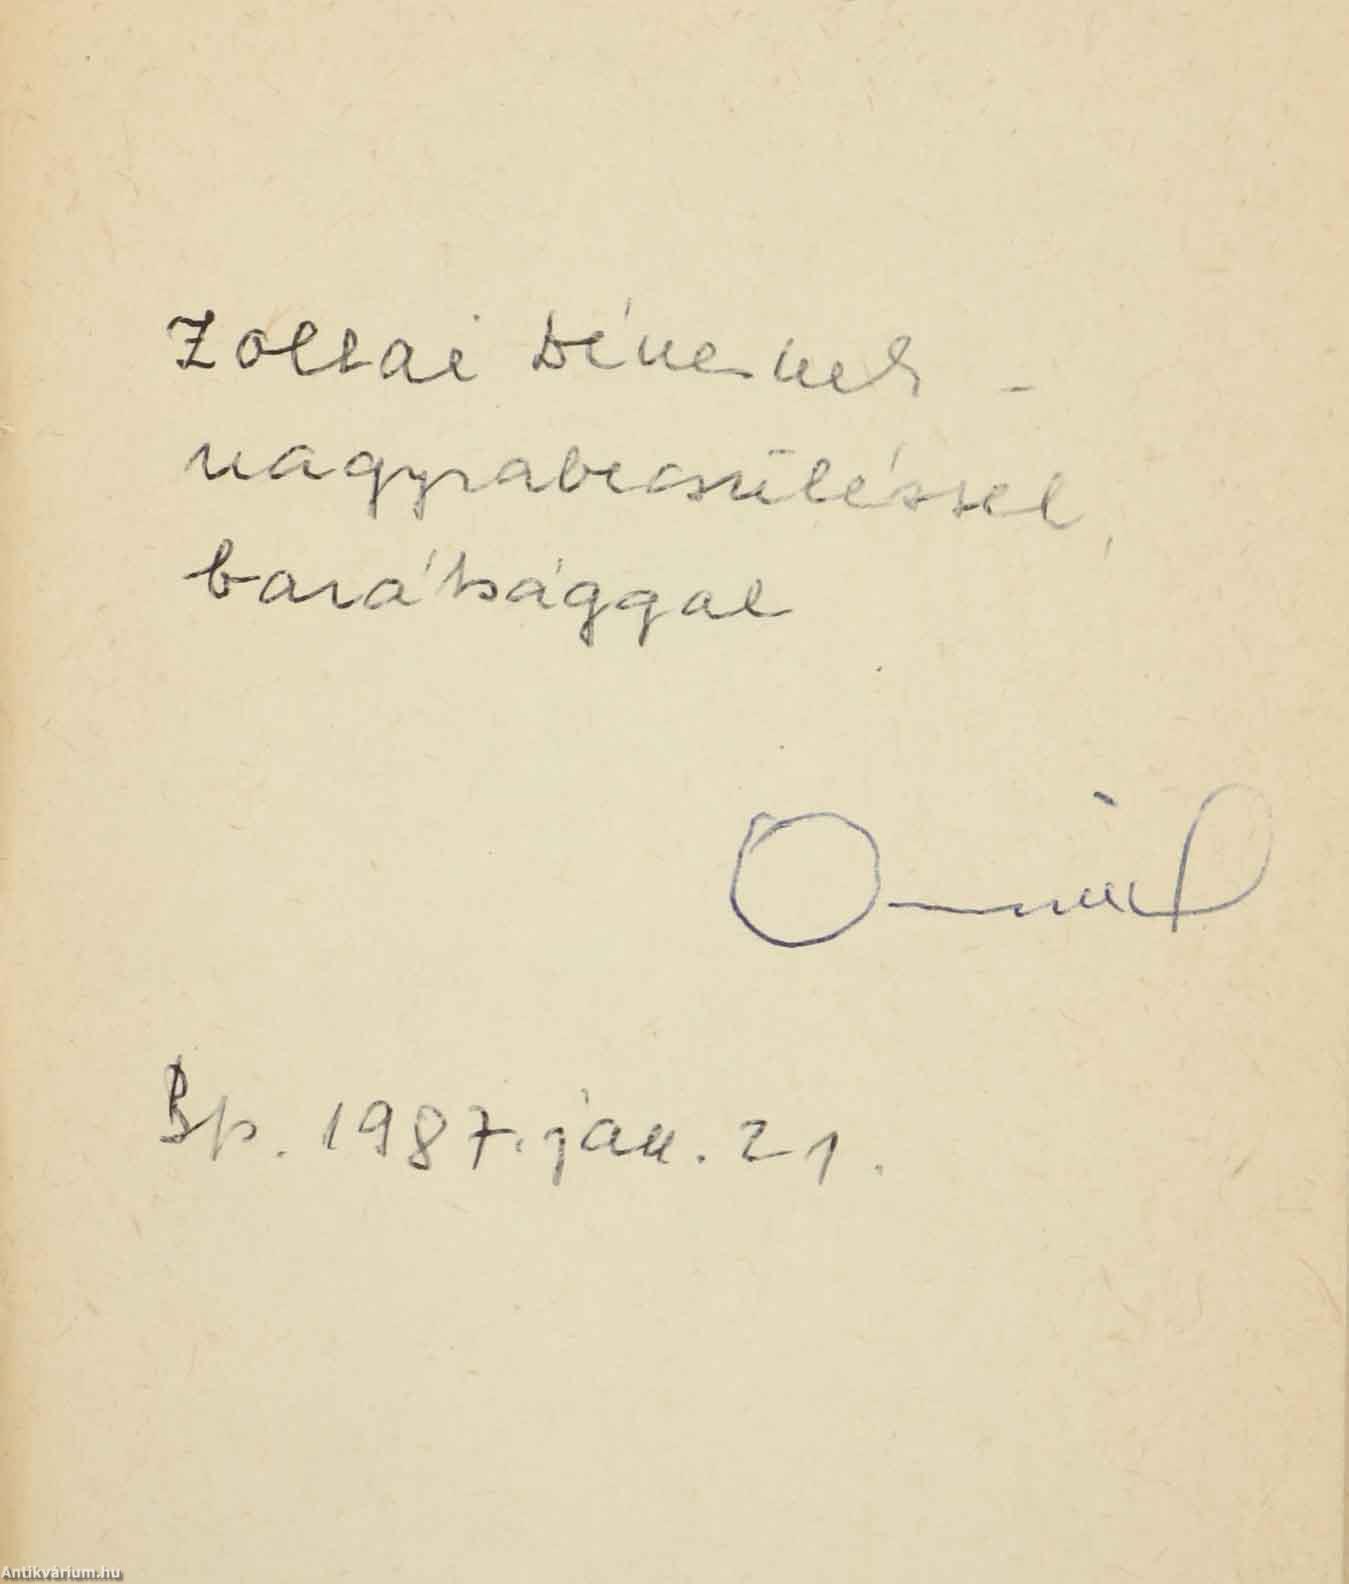 Zoltai Dénesnek –
nagyrabecsüléssel,
barátsággal
Bp. 1987. jan. 21.
Antikvárium.hu